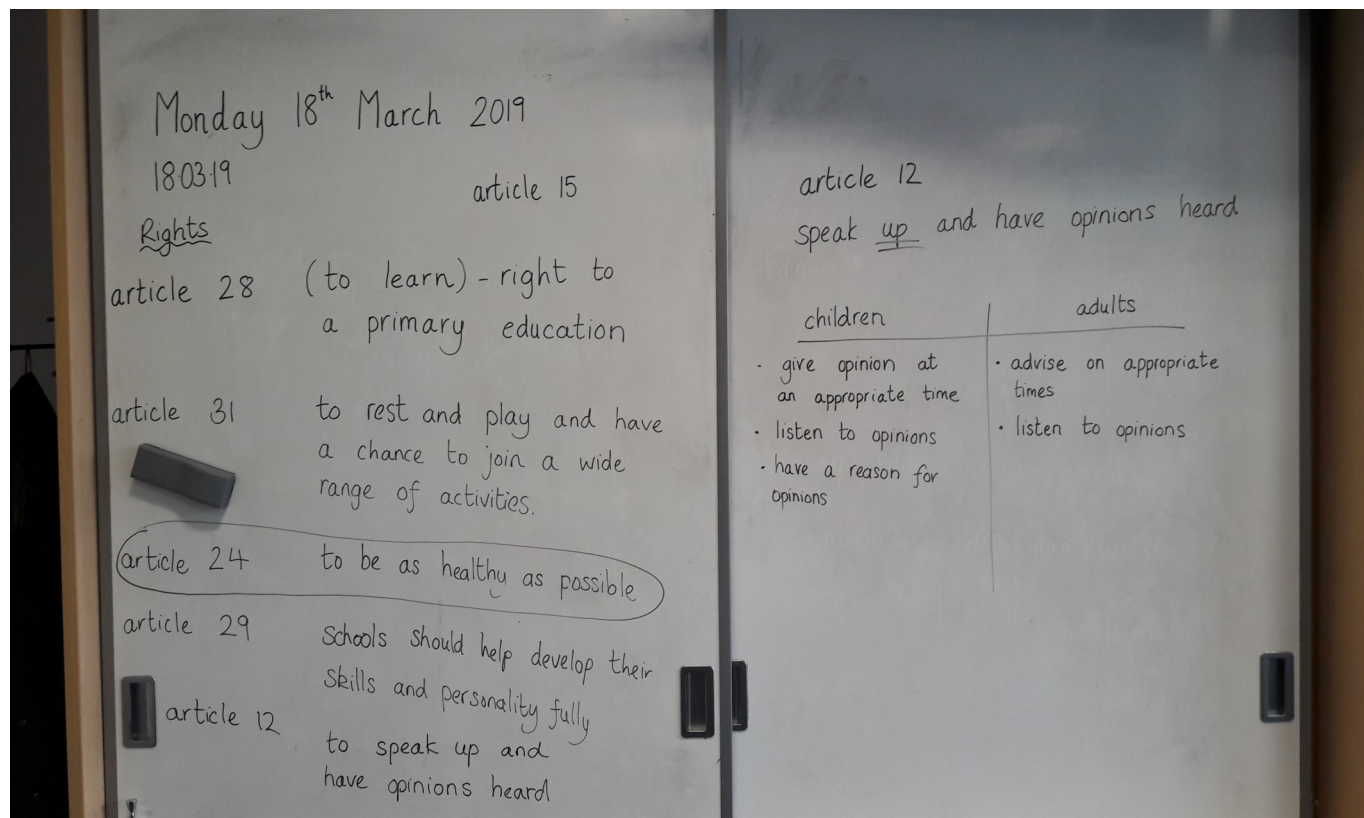 Monday 18th March 2019
18.03.19
article 15
Rights
article 28 (to learn) - right to
a primary education
article 31 to rest and play and have
a chance to join a wide
range of activities.
article 24 to be as healthy as possible
article 29 Schools should help develop their
skills and personality fully
article 12 to speak up and
have opinions heard
article 12
speak up and have opinions heard
children
· give opinion at
an appropriate time
· listen to opinions
· have a reason for
opinions
adults
· advise on appropriate
times
· listen to opinions